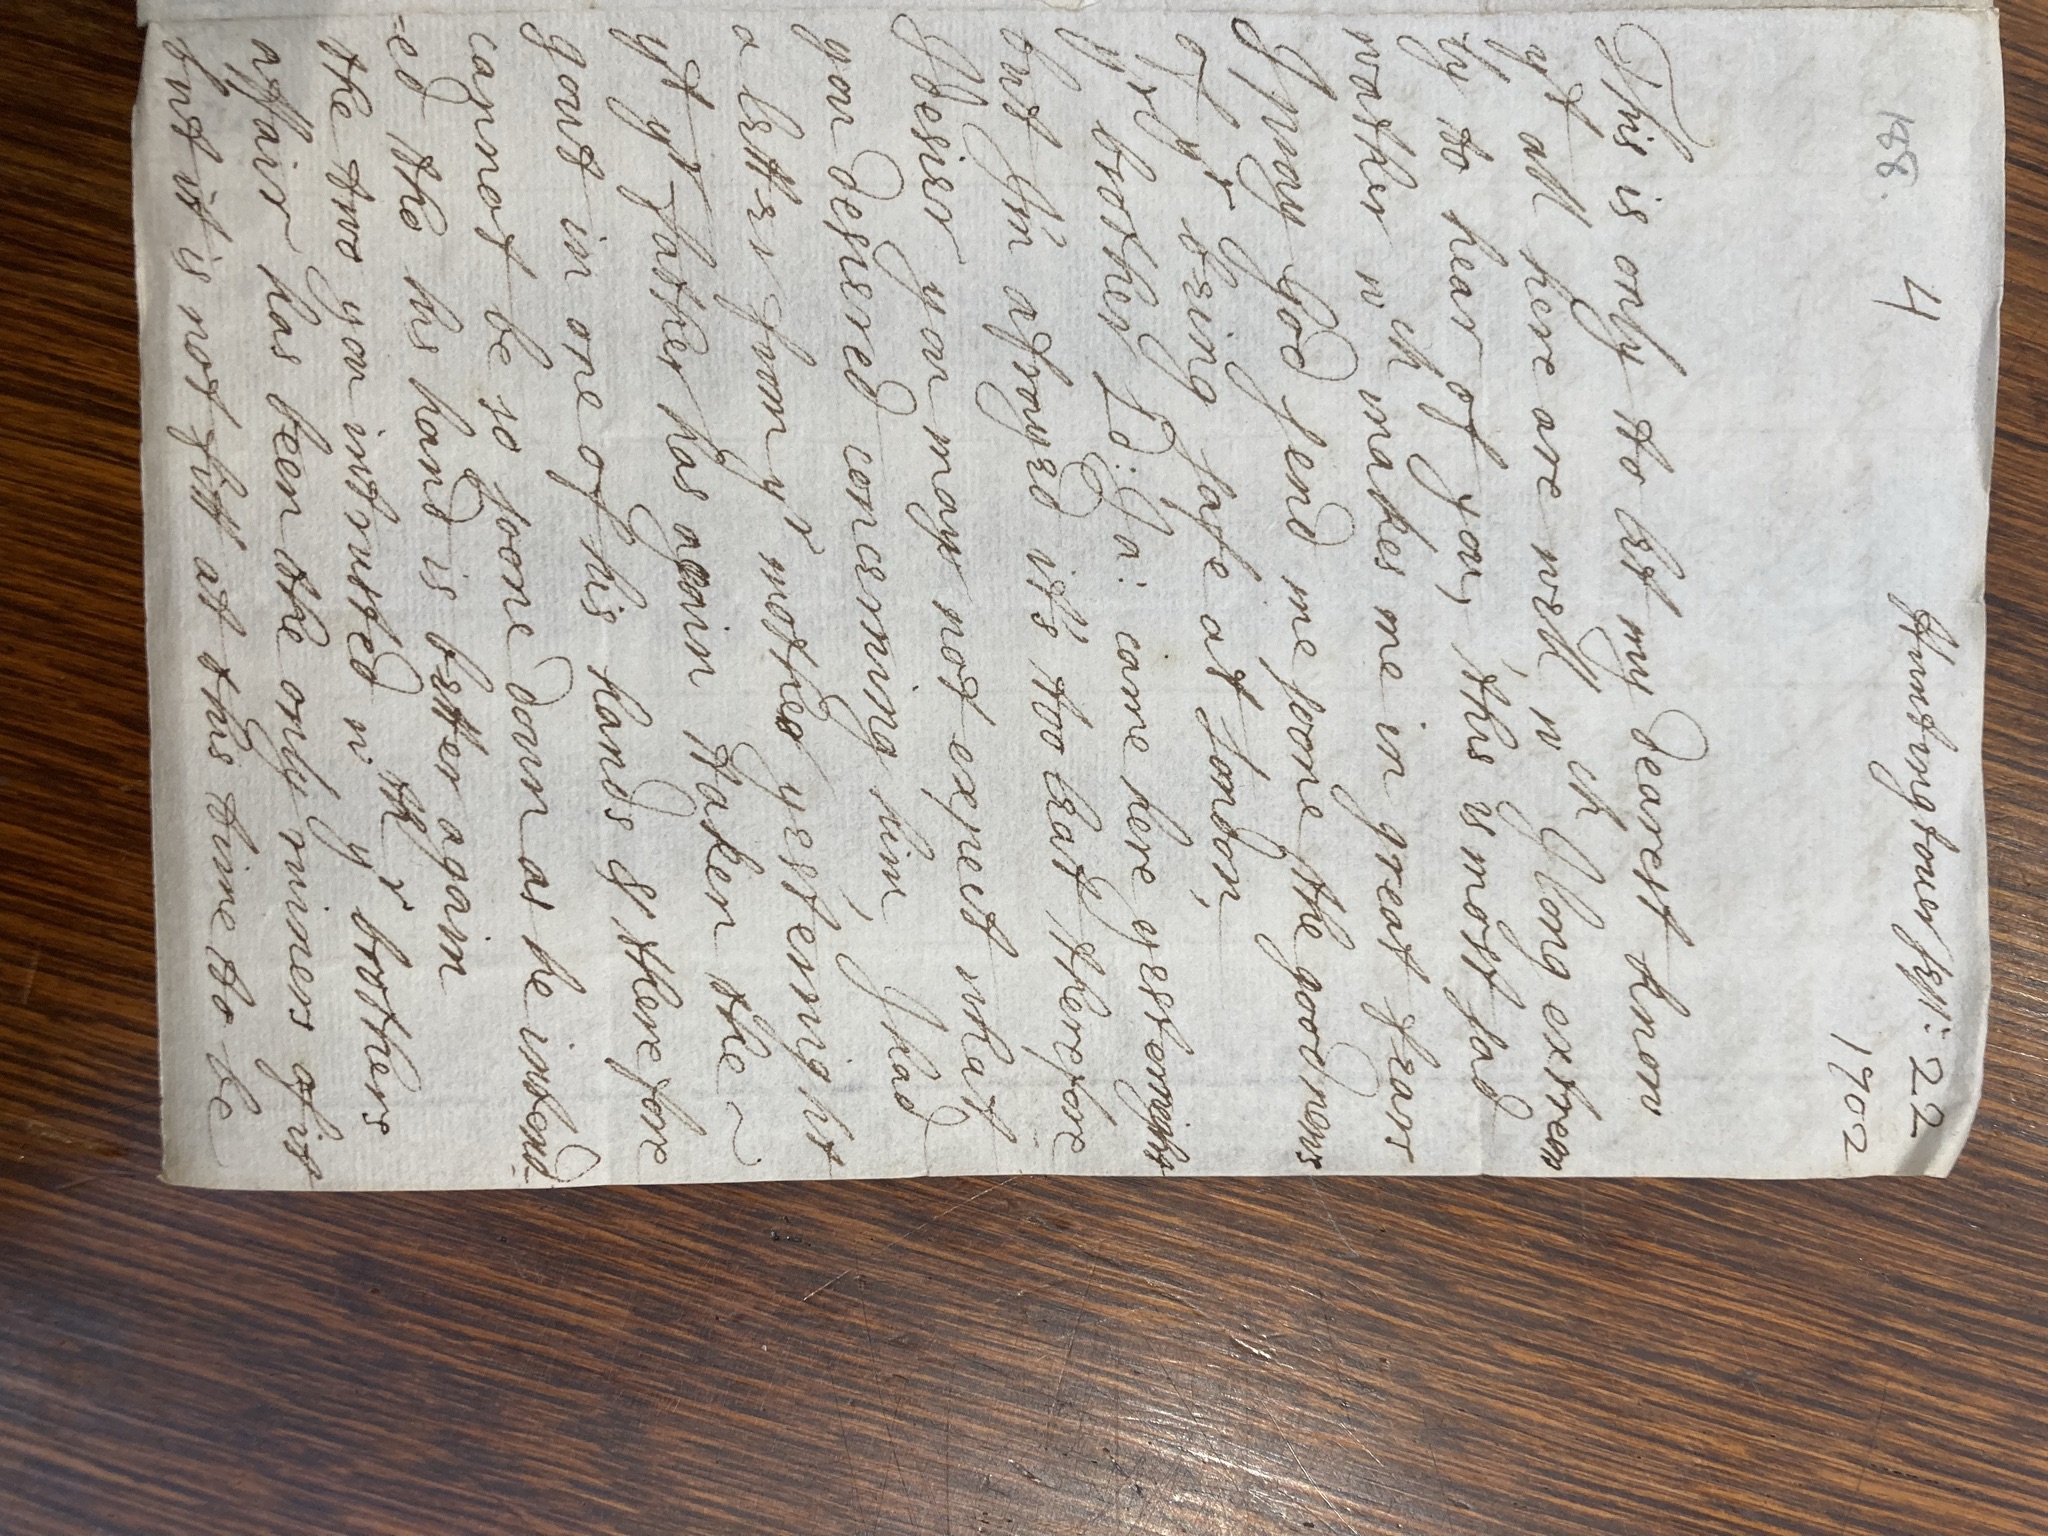 188. 4 Huntingtouer sept: 22
1702
This is only to let my dearest know
yt all here are well, wch I long extreem
ly to hear of you, this is most sad
wather wch makes me in great fears
I pray God send me soone the good news
of yr being safe at London,
yr brother Ld: Ja: came here yesternight
but I'm afrayed it's too leat therefore
I desier you may not expect what
you desiered concerning him, I had
a letter from yr mother yesternight
yt yr father has again taken the ~
gout in one of his hands & therefore
cannot be so soone doun as he intend-
=ed tho his hand is better again
the two you intrusted wth yr brothers
affair has been the only ruiners of it
but it is not fitt at this time to be